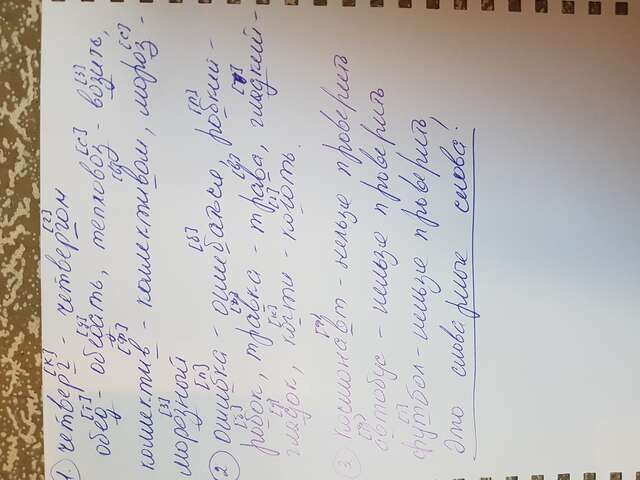 1. четверг - четвергом
[к] [г]
обед - обедать, тепловоз - возить,
[т] [д] [с] [з]
коллектив - коллективом, мороз -
[ф] [с]
морозный
[з]
2 ошибка - ошибаться, робкий -
[п] [б] [п]
робок, травка - трава, гладкий -
[б] [ф] [т]
гладок, когти - коготь.
[д] [к] [г]
3 космонавт - нельзя проверить
[ф]
автобус - нельзя проверить
[ф]
футбол - нельзя проверить
Это словарные слова!